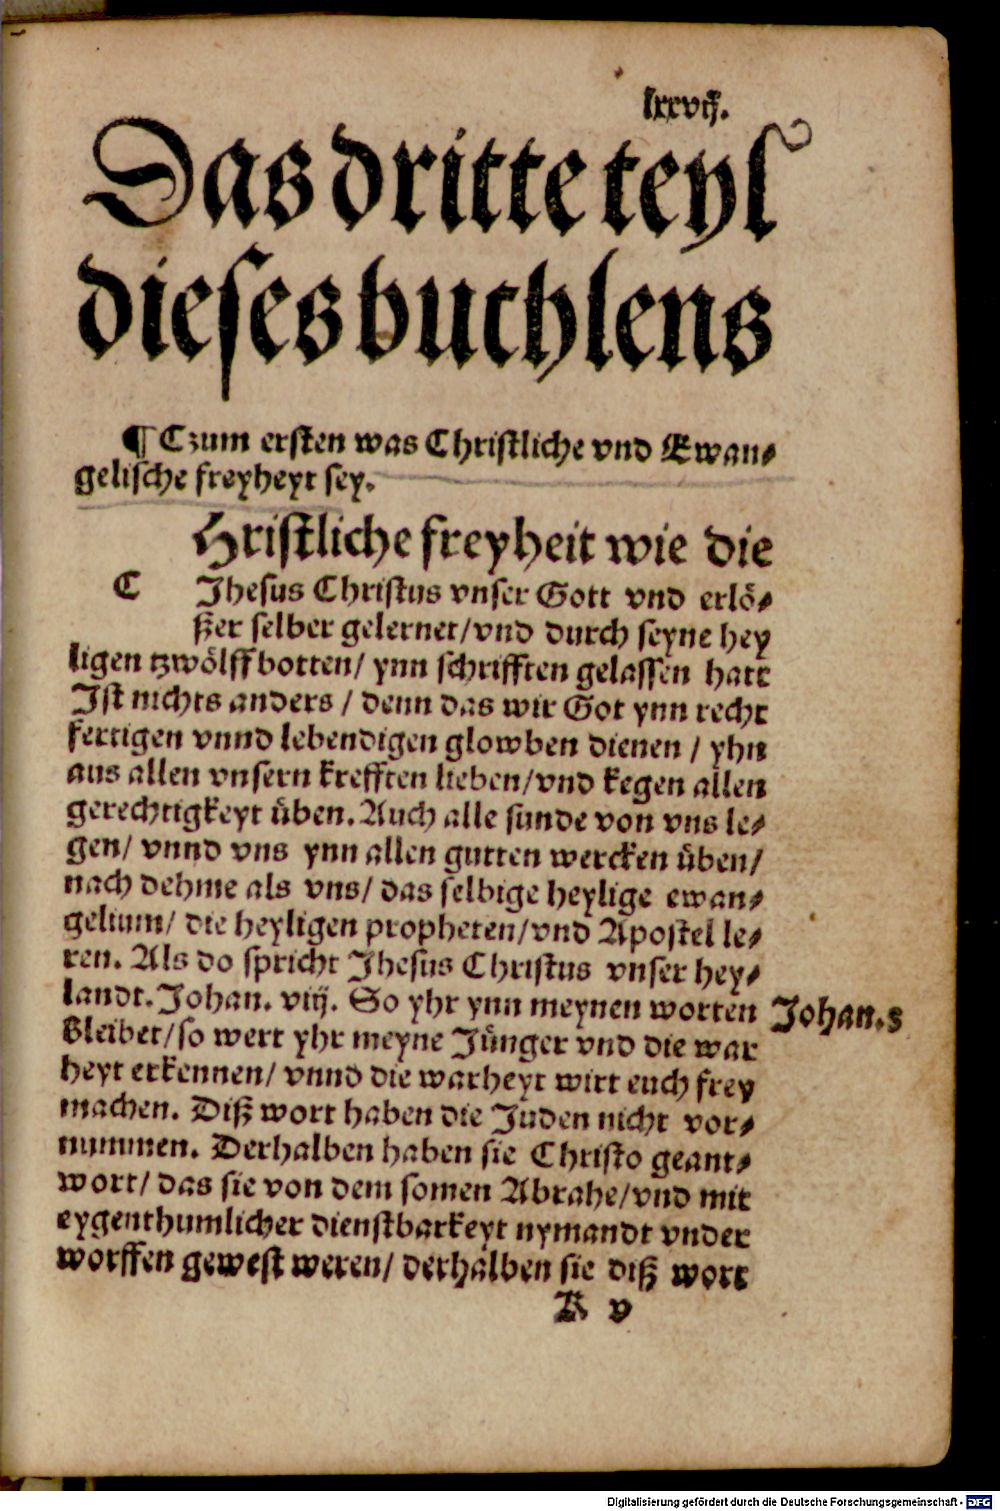 lxxvij.
Das dritte teyl
dieses buchlens
¶ Czum ersten was Christliche vnd Ewan⸗
gelische freyheyt sey.
Hristliche freyheit wie die
C Jhesus Christus vnser Gott vnd erlö⸗
ßer selber gelernet/vnd durch seyne hey
ligen tzwölff botten/ ynn schrifften gelassen hatt
Jst nichts anders / denn das wir Got ynn recht
fertigen vnnd lebendigen glowben dienen / yhn
aus allen vnsern krefften lieben/vnd kegen allen
gerechtigkeyt üben. Auch alle sunde von vns le⸗
gen/ vnnd vns ynn allen gutten wercken üben/
nach dehme als vns/ das selbige heylige ewan⸗
gelium/ die heyligen propheten/vnd Apostel le⸗
ren. Als do spricht Jhesus Christus vnser hey⸗
landt. Johan. viij. So yhr ynn meynen worten
Johan.8
bleibet/so wert yhr meyne Jünger vnd die war
heyt erkennen/ vnnd die warheyt wirt euch frey
machen. Diß wort haben die Juden nicht vor⸗
nummen. Derhalben haben sie Christo geant⸗
wort/ das sie von dem somen Abrahe/vnd mit
eygenthumlicher dienstbarkeyt nymandt vnder
worffen gewest weren/ derhalben sie diß wort
K v
Digitalisierung gefördert durch die Deutsche Forschungsgemeinschaft - DFG